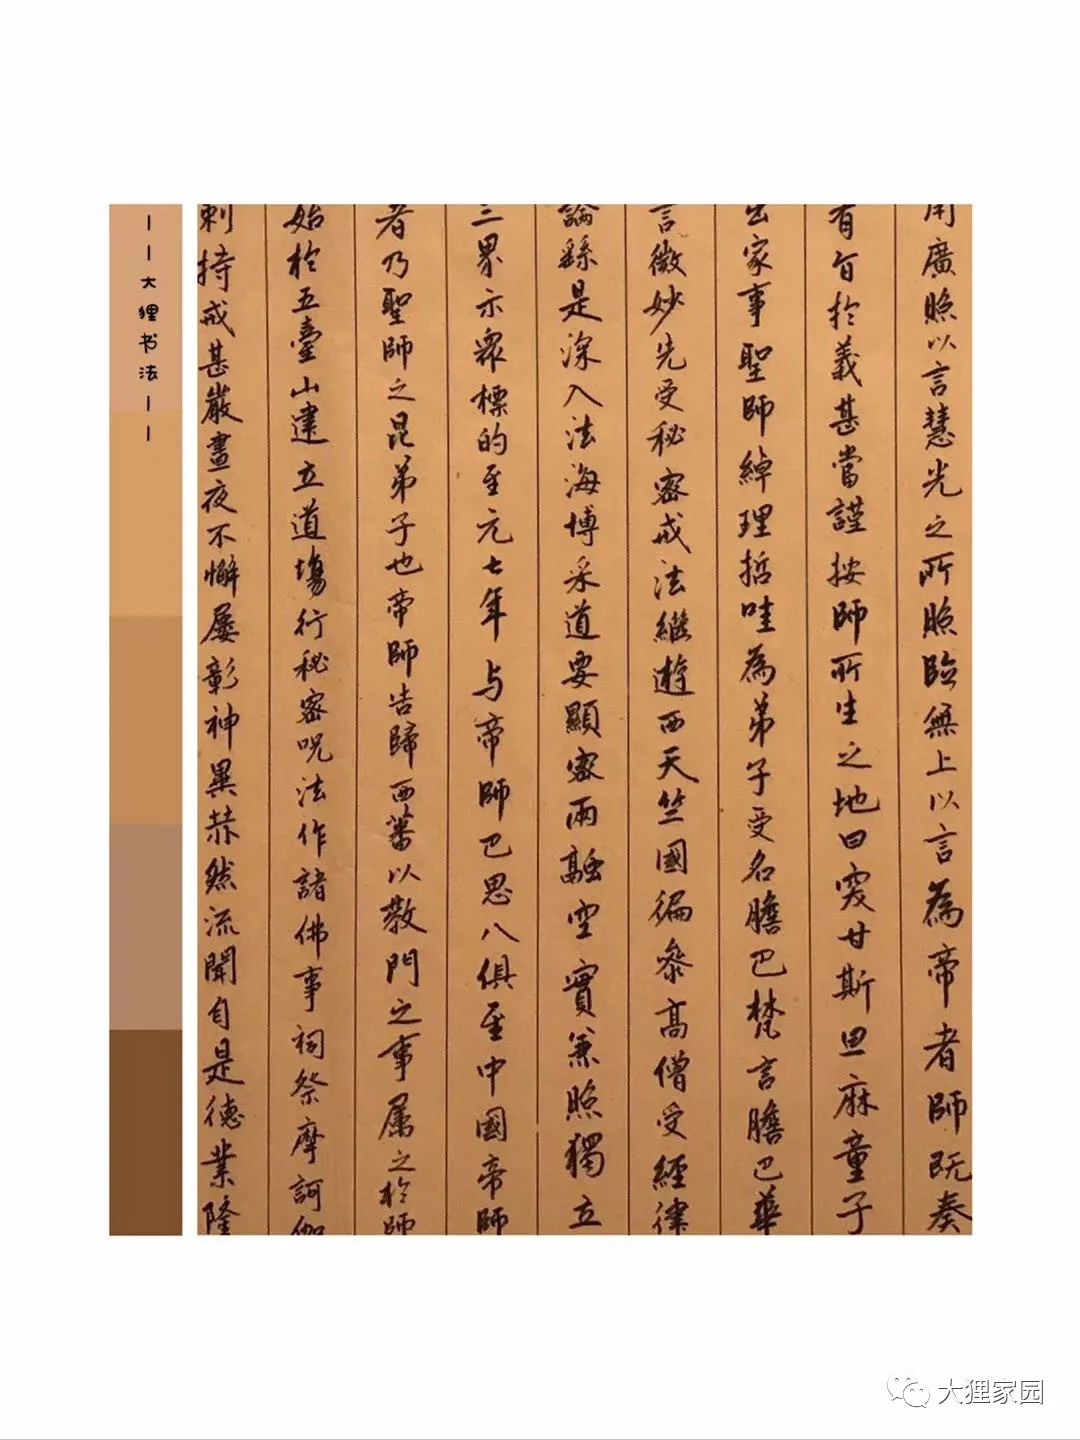 用廣照以言慧光之所照臨無上以言為帝者師既奏
有旨於義甚當謹按師所生之地曰突甘斯旦麻童子
出家事聖師綽理哲哇為弟子受名膽巴梵言膽巴華
言微妙先受秘密戒法繼遊西天竺國徧參高僧受經律
論繇是深入法海博采道要顯密兩融空實兼照獨立
三界示眾標的至元七年与帝師巴思八俱至中國帝師
者乃聖師之昆弟子也帝師告歸西蕃以教門之事属之於師
始於五臺山建立道場行秘密呪法作諸佛事祠祭摩訶伽
剌持戒甚嚴晝夜不懈屡彰神異赫然流聞自是德業隆
——大狸书法——
大狸家园